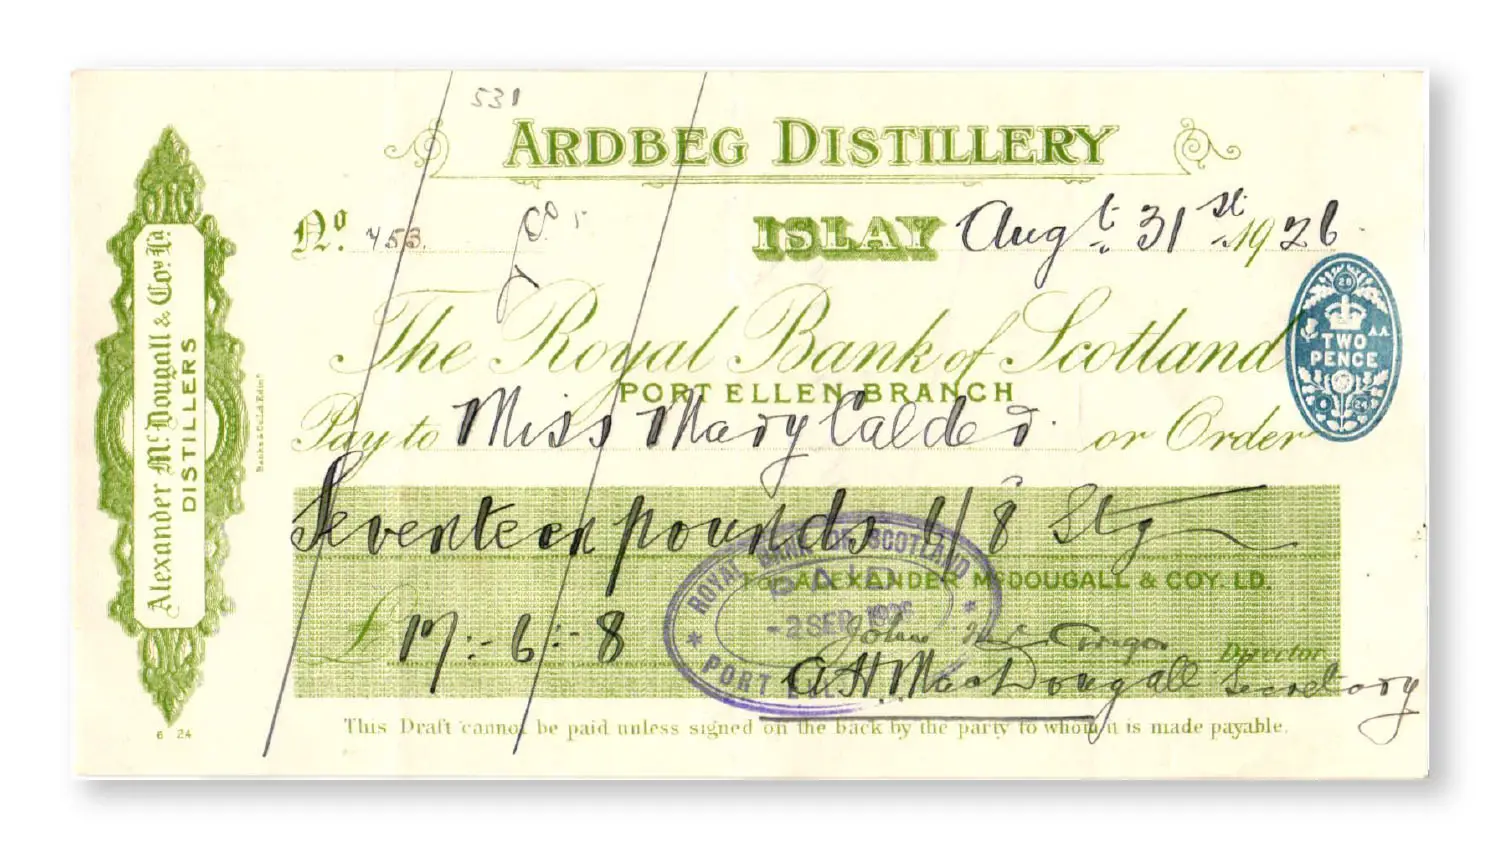 531
ARDBEG DISTILLERY
Nº. 453. ISLAY Augt. 31st. 1926.
The Royal Bank of Scotland
TWO PENCE
PORT ELLEN BRANCH
Pay to Miss Mary Calder or Order
Seventeen pounds 6/8 Stg
For ALEXANDER McDOUGALL & COY. LD.
£ 17:-6:-8
ROYAL BANK OF SCOTLAND
PAID
-2 SEP 1926
PORT
John Director
A H MacDougall Secretary
This Draft cannot be paid unless signed on the back by the party to whom it is made payable.
Alexander McDougall & Coy. Ld.
DISTILLERS
6 24